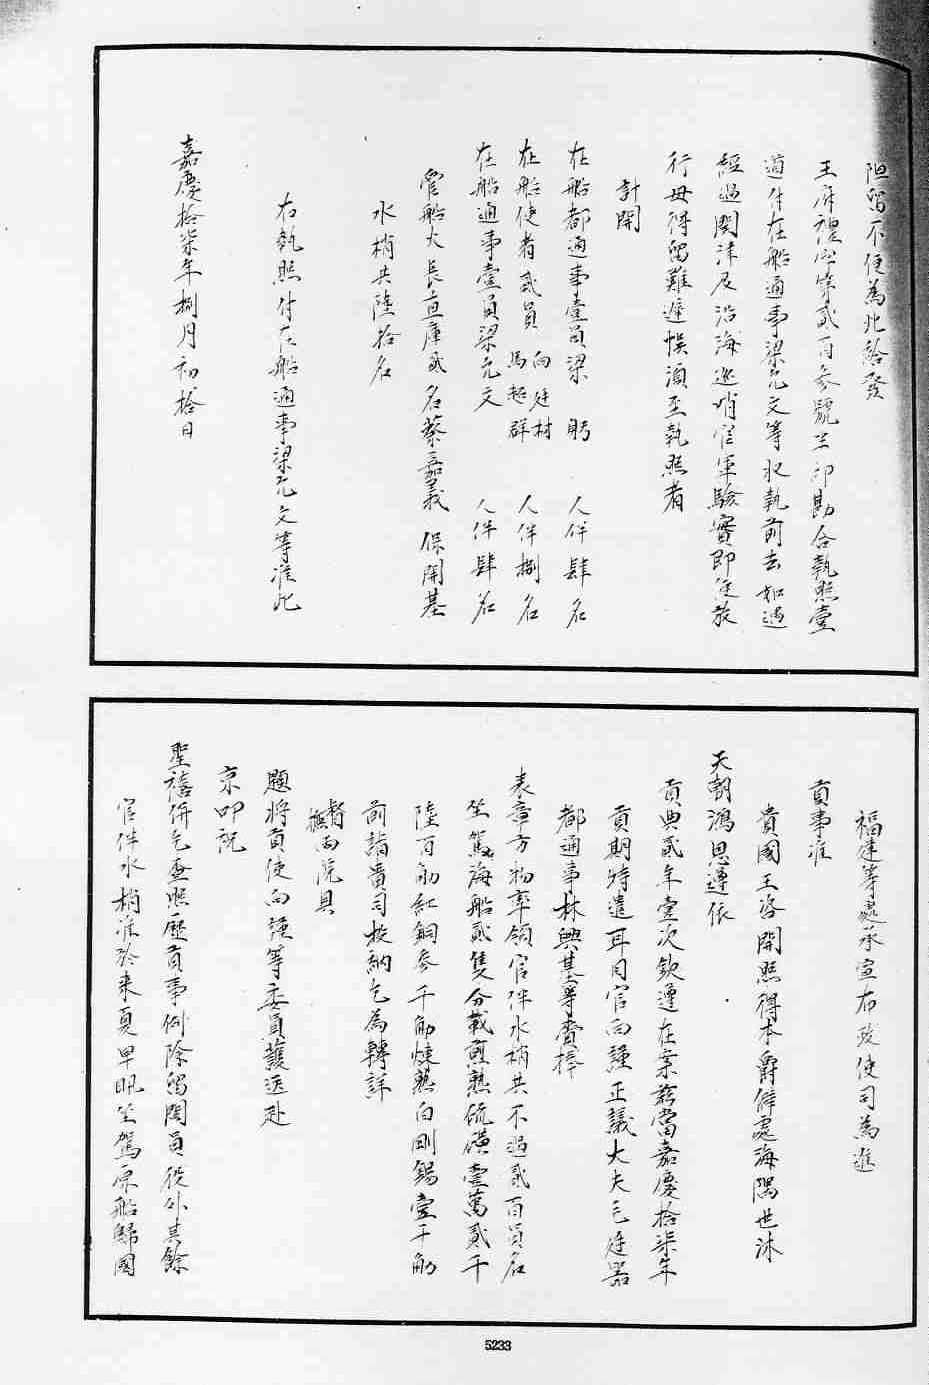 阻留不便為此給發
王府禮字第貳百參號半印勘合執照壹
道付在船通事梁元文等收執前去如遇
經過關津及沿海巡哨官軍驗實即便放
行毋得留難遲悞須至執照者
計開
在船都通事壹員梁 躬 人伴肆名
在船使者貳員 向廷材 馬超群 人伴捌名
在船通事壹員梁元文 人伴肆名
管船火長直庫貳名蔡嘉義 保開基
水梢共陸拾名
右執照付在船通事梁元文等准此
嘉慶拾柒年捌月初拾日
福建等處承宣布政使司為進
貢事准
貴國王咨開照得本爵僻處海隅世沐
天朝鴻恩遵依
貢典貳年壹次欽遵在案茲當嘉慶拾柒年
貢期特遣耳目官向謹正議大夫毛廷器
都通事林興基等賫捧
表章方物率領官伴水梢共不過貳百員名
坐駕海船貳隻分載煎熟硫磺壹萬貳千
陸百觔紅銅參千觔煉熟白剛錫壹千觔
前詣貴司投納乞為轉詳
督撫兩院具
題將貢使向謹等委員護送赴
京叩祝
聖禧併乞查照歷貢事例除留閩員役外其餘
官伴水梢准於來夏早汛坐駕原船歸國
5233